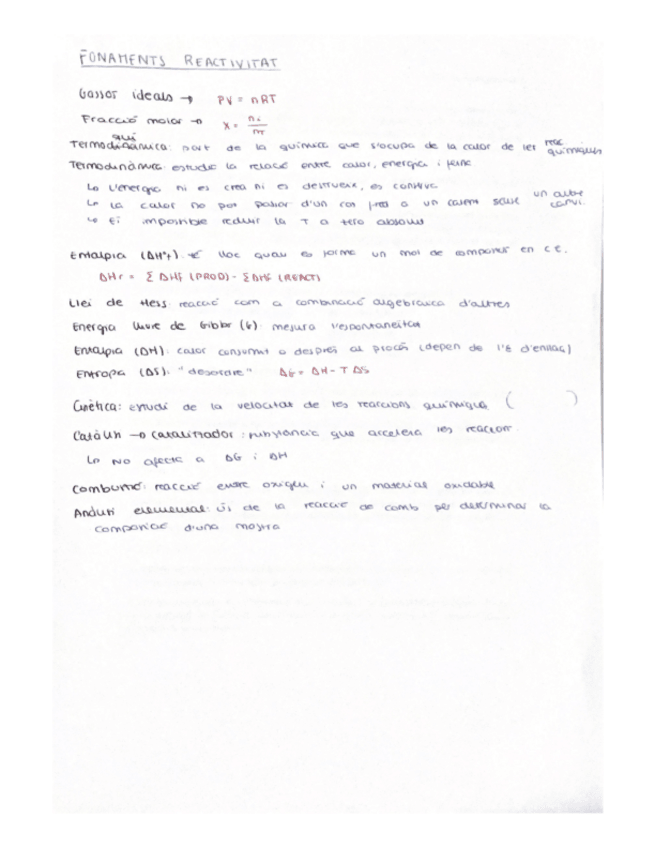 FONAMENTS REACTIVITAT
Gassos ideals → PV = nRT
Fracció molar → X = ni / nT
Termoquímica: part de la química que s'ocupa de la calor de les reac químiques
Termodinàmica: estudia la relació entre calor, energia i feina
↳ L'energia ni es crea ni es destrueix, es conserva
↳ La calor no pot passar d'un cos fred a un calent sense un altre canvi.
↳ És impossible reduir la T a zero absolut
Entalpia (ΔHºf): té lloc quan es forma un mol de compost en C.E.
ΔHr = Σ ΔHf (PROD) - Σ ΔHf (REACT)
Llei de Hess: reacció com a combinació algebraica d'altres
Energia lliure de Gibbs (G): mesura l'espontaneïtat
Entalpia (ΔH): calor consumit o després al procés (depen de l'E d'enllaç)
Entropia (ΔS): "desordre" ΔG = ΔH - T ΔS
Cinètica: estudi de la velocitat de les reaccions químiques ( )
Catàlisi → catalitzador: substància que accelera les reaccions
↳ No afecta a ΔG i ΔH
Combustió: reacció entre oxigen i un material oxidable
Anàlisi elemental: ús de la reacció de comb per determinar la
composició d'una mostra